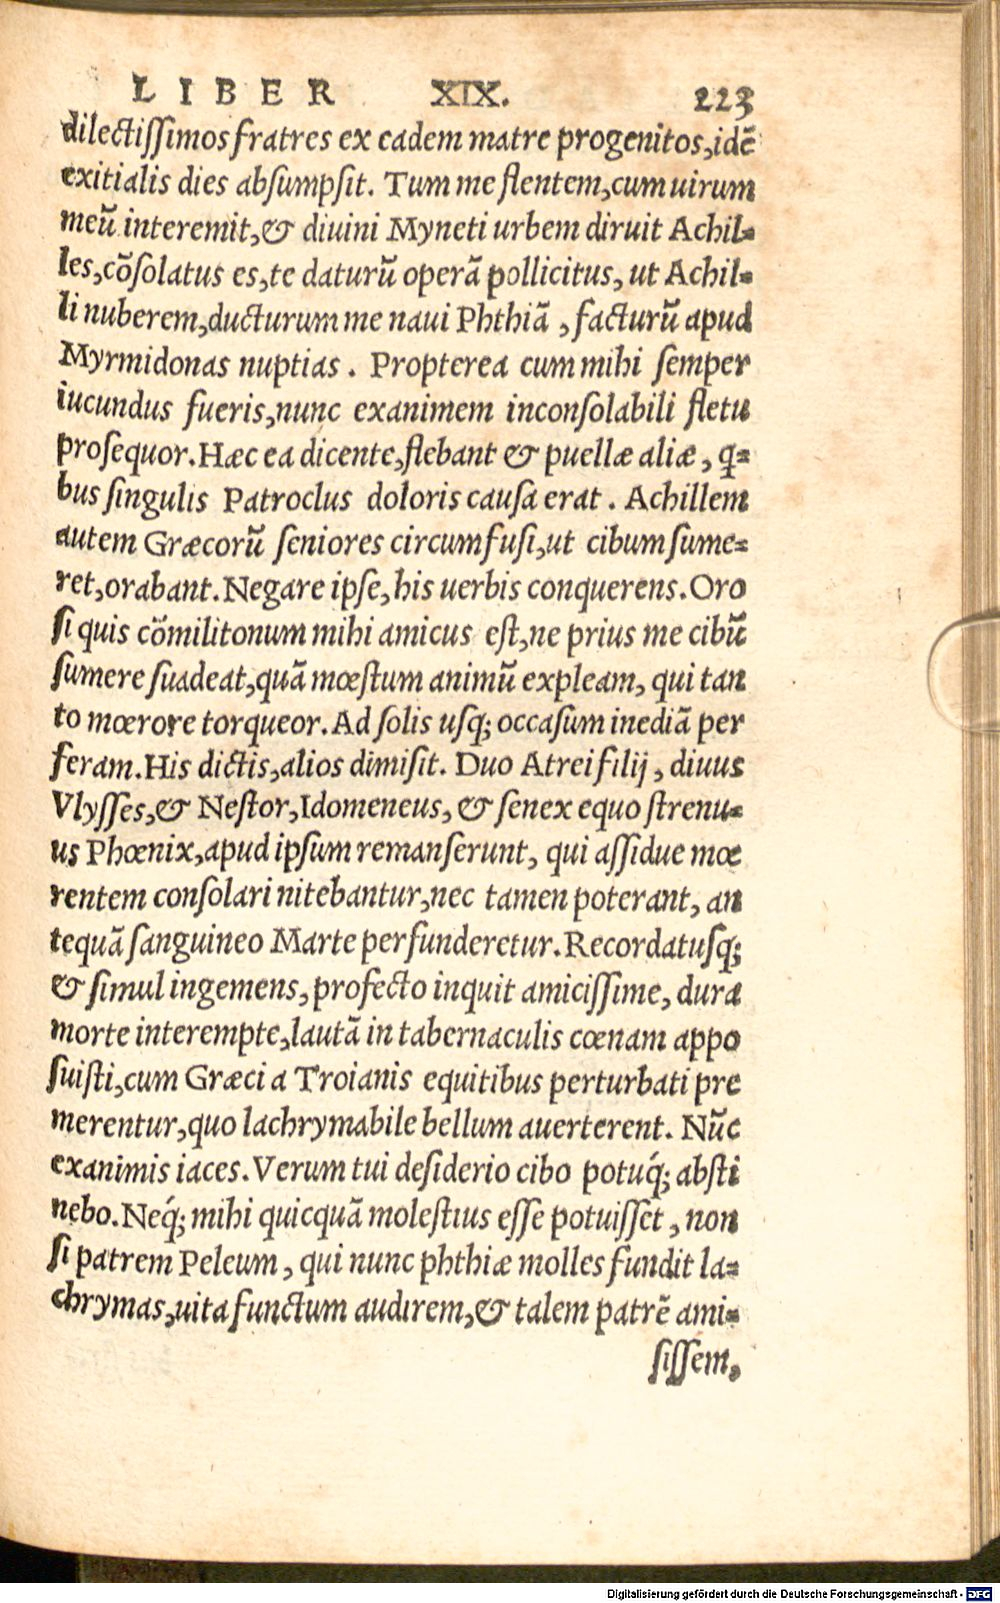 LIBER XIX. 223
dilectissimos fratres ex eadem matre progenitos, idẽ
exitialis dies absumpsit. Tum me flentem, cum uirum
meũ interemit, & diuini Myneti urbem diruit Achil-
les, cõsolatus es, te daturũ operã pollicitus, ut Achil-
li nuberem, ducturum me naui Phthiã, facturũ apud
Myrmidonas nuptias. Propterea cum mihi semper
iucundus fueris, nunc exanimem inconsolabili fletu
prosequor. Hæc ea dicente, flebant & puellæ aliæ, q-
bus singulis Patroclus doloris causa erat. Achillem
autem Græcorũ seniores circumfusi, ut cibum sume-
ret, orabant. Negare ipse, his uerbis conquerens. Oro
si quis cõmilitonum mihi amicus est, ne prius me cibũ
sumere suadeat, quã mœstum animũ expleam, qui tan
to mœrore torqueor. Ad solis usq; occasum inediã per
feram. His dictis, alios dimisit. Duo Atrei filij, diuus
Vlysses, & Nestor, Idomeneus, & senex equo strenu-
us Phœnix, apud ipsum remanserunt, qui assidue mœ
rentem consolari nitebantur, nec tamen poterant, an
tequã sanguineo Marte perfunderetur. Recordatusq;
& simul ingemens, profecto inquit amicissime, dura
morte interempte, lautã in tabernaculis cœnam appo
suisti, cum Græci a Troianis equitibus perturbati pre
merentur, quo lachrymabile bellum auerterent. Nũc
exanimis iaces. Verum tui desiderio cibo potuq́; absti
nebo. Neq́; mihi quicquã molestius esse potuisset, non
si patrem Peleum, qui nunc phthiæ molles fundit la-
chrymas, uita functum audirem, & talem patrẽ ami-
sissem,
Digitalisierung gefördert durch die Deutsche Forschungsgemeinschaft - DFG